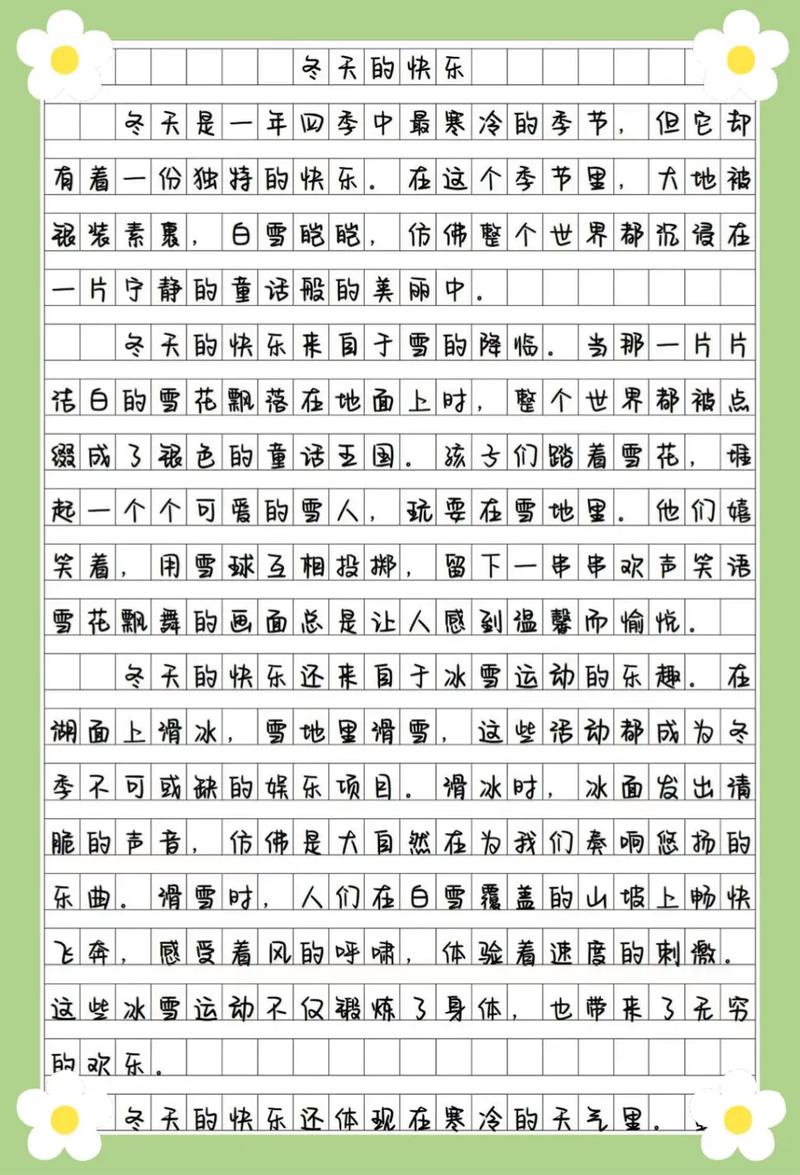 冬天的快乐
冬天是一年四季中最寒冷的季节，但它却
有着一份独特的快乐。在这个季节里，大地被
银装素裹，白雪皑皑，仿佛整个世界都沉浸在
一片宁静的童话般的美丽中。
冬天的快乐来自于雪的降临。当那一片片
洁白的雪花飘落在地面上时，整个世界都被点
缀成了银色的童话王国。孩子们踏着雪花，堆
起一个个可爱的雪人，玩耍在雪地里。他们嬉
笑着，用雪球互相投掷，留下一串串欢声笑语
雪花飘舞的画面总是让人感到温馨而愉悦。
冬天的快乐还来自于冰雪运动的乐趣。在
湖面上滑冰，雪地里滑雪，这些活动都成为冬
季不可或缺的娱乐项目。滑冰时，冰面发出清
脆的声音，仿佛是大自然在为我们奏响悠扬的
乐曲。滑雪时，人们在白雪覆盖的山坡上畅快
飞奔，感受着风的呼啸，体验着速度的刺激。
这些冰雪运动不仅锻炼了身体，也带来了无穷
的欢乐。
冬天的快乐还体现在寒冷的天气里。